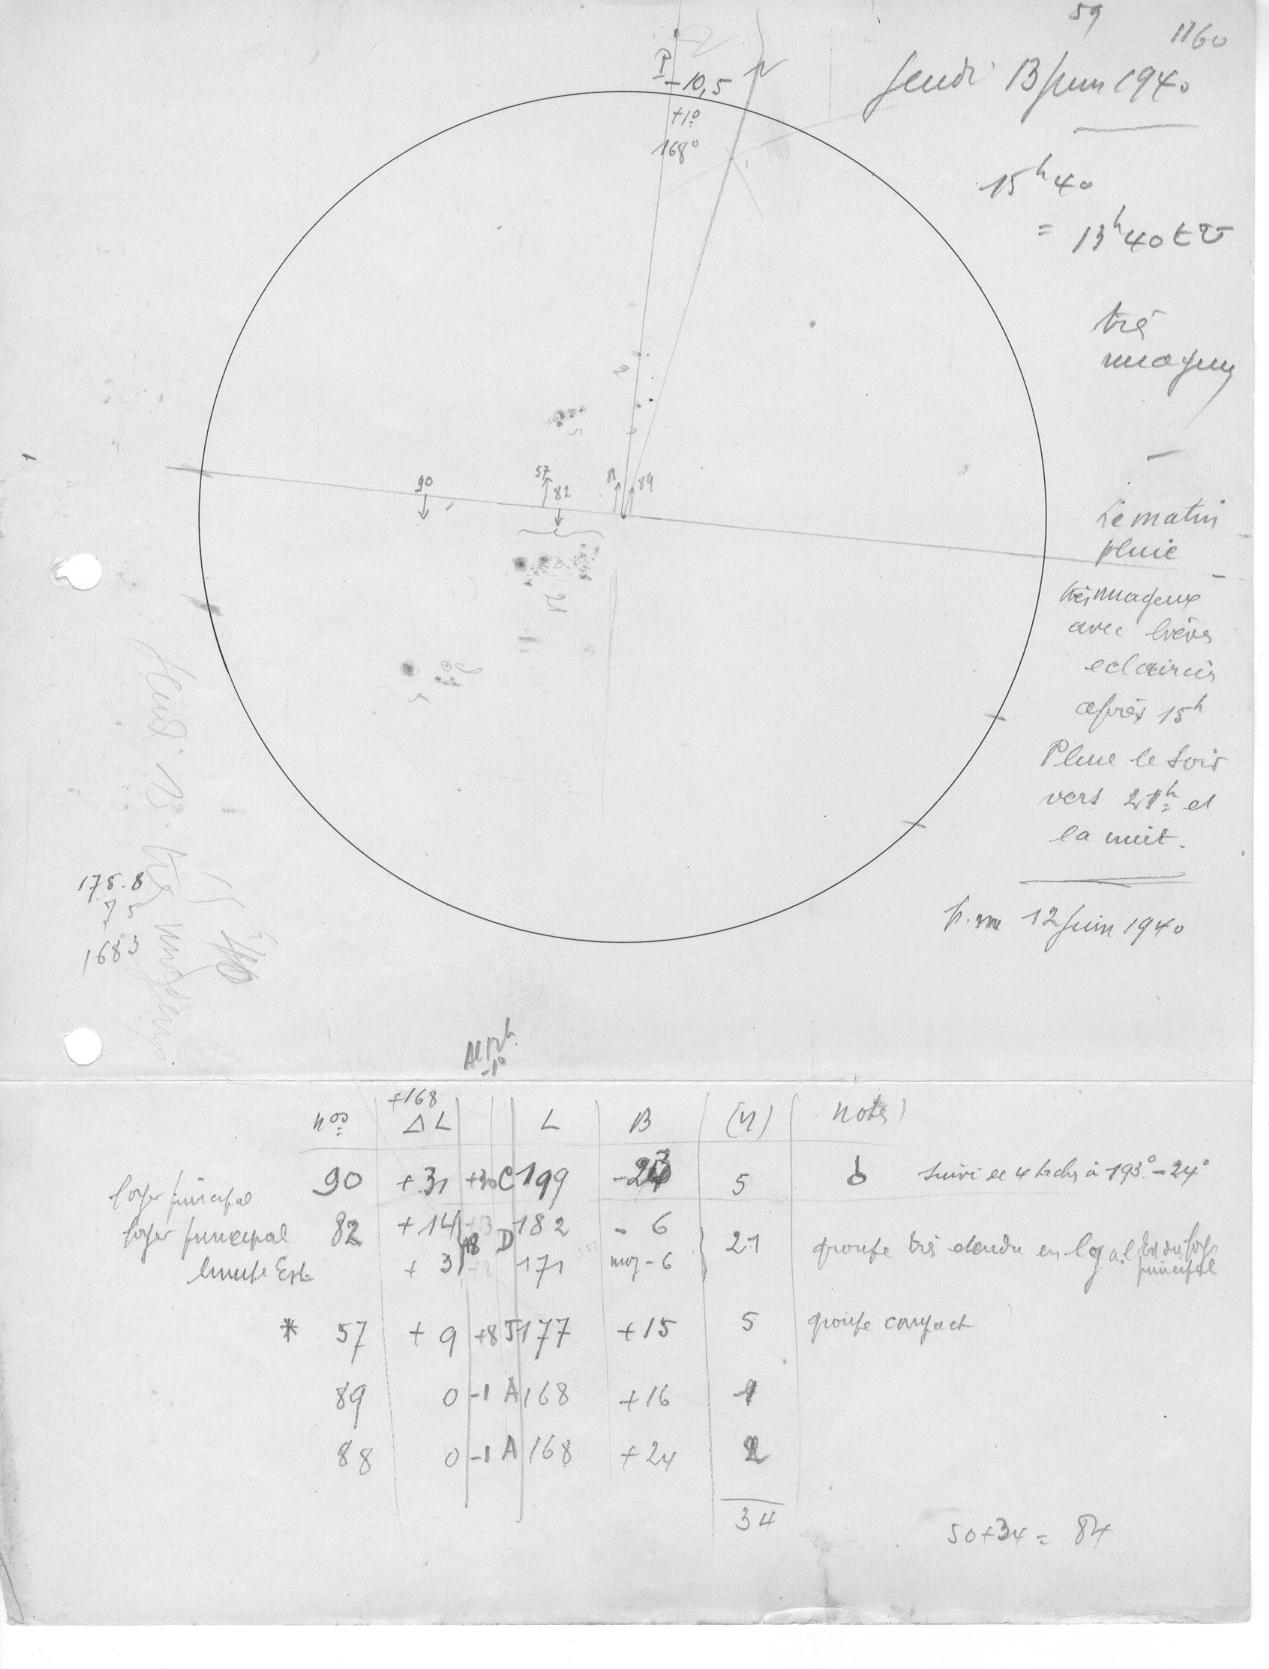 59
1160
Jeudi 13 Juin 1940
P
-10,5
+1°
168°
15h40
= 13h40 TU
très
nuageux
Le matin
pluie
très nuageux
avec brèves
eclaircies
après 15h
Pluie le soir
vers 21h et
la nuit.
p.m 12 Juin 1940
90
57
82
89
2
5
21
5
Jeudi 13. très nuageux
15h40
175.8
75
1683
+168
-1°
nos ΔL L B (N) notes
foyer principal 90 +31 +30 C 199 -23 5 suivi de 4 taches à 193° -24°
foyer principal 82 +14 +8 D 182 -6 21 groupe très étendu en Log
limite Est +3 171 moy -6
* 57 +9 +8 J 177 +15 5 groupe compact
89 0 -1 A 168 +16 1
88 0 -1 A 168 +24 2
34
50+34 = 84